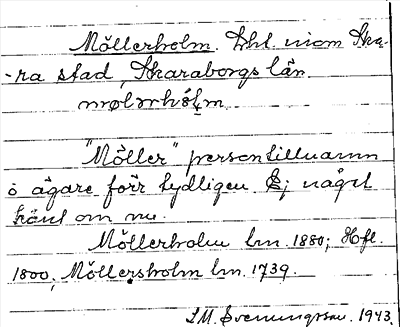 Möllerholm. Lht. inom Ska-
-ra stad, Skaraborgs län.
"Möller" persontillnamn
å ägare förr tydligen. Ej något
känt om nu.
Möllerholm Lm. 1880; Hfl.
1800, Möllersholm Lm. 1739.
I.M. Svenungsson. 1943.